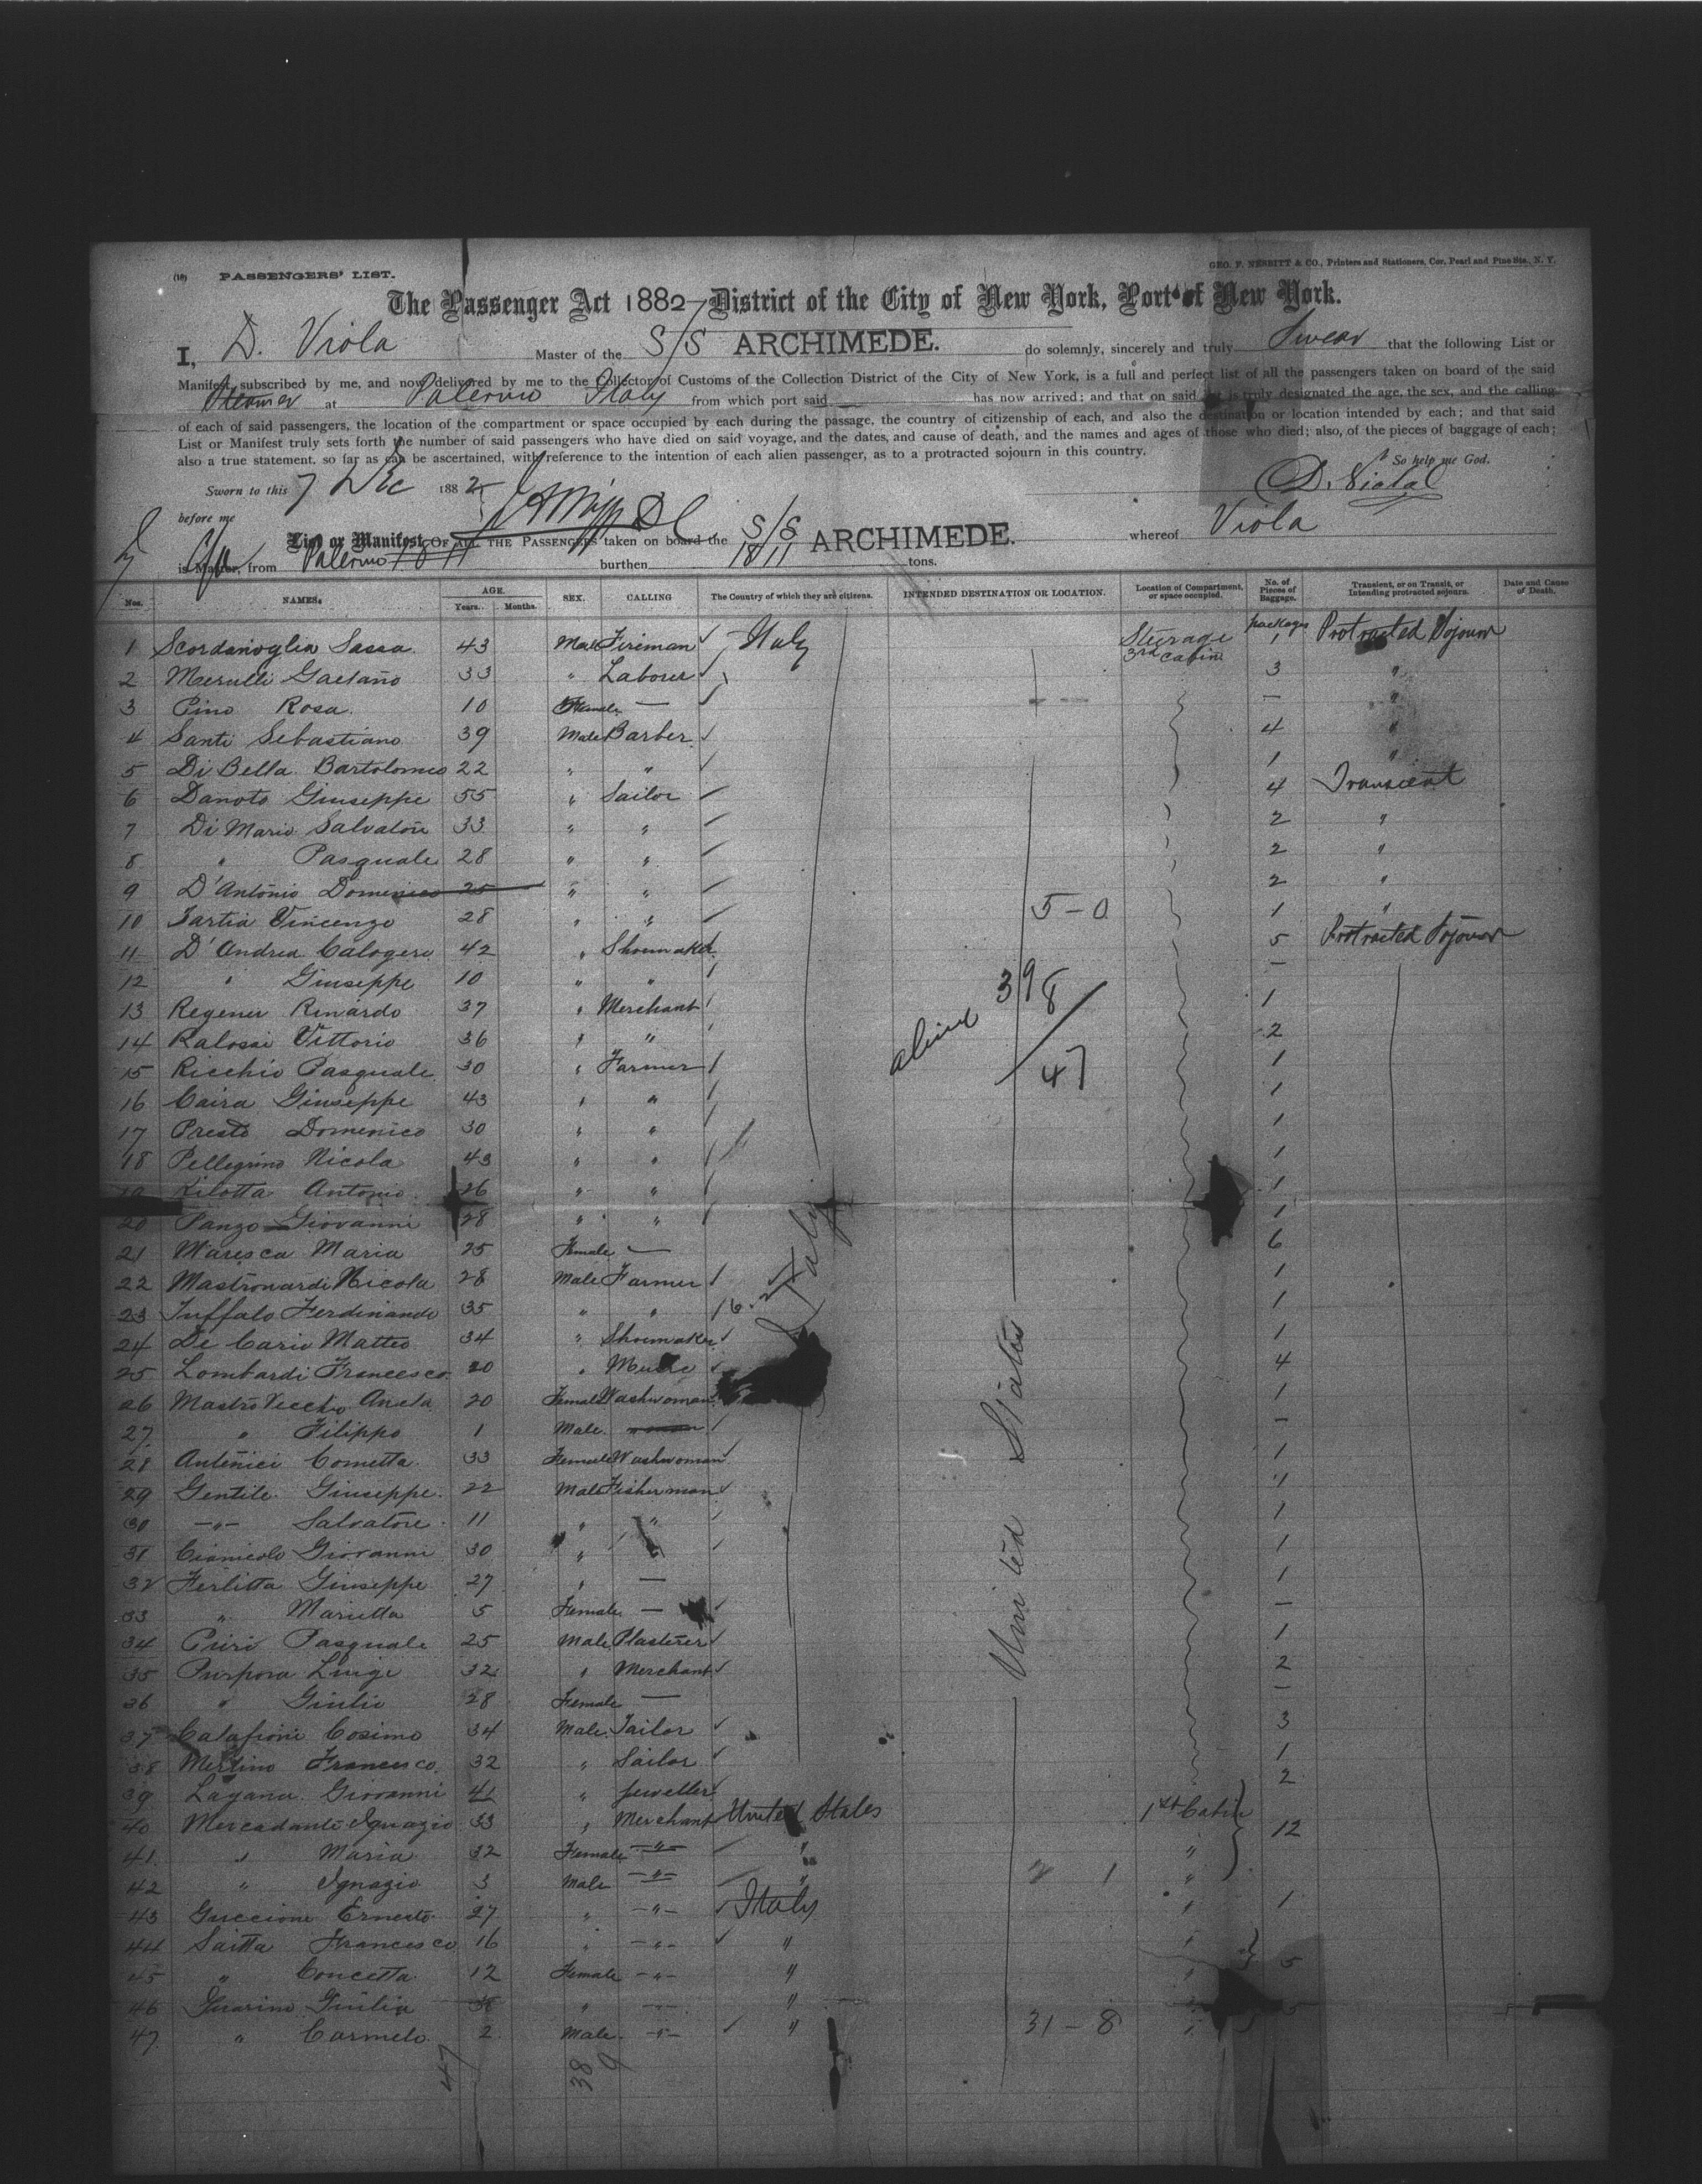 (10) PASSENGERS' LIST.
GEO. F. NESBITT & CO., Printers and Stationers, Cor. Pearl and Pine Sts., N. Y.
The Passenger Act 1882 District of the City of New York, Port of New York.
I, D. Viola Master of the S/S ARCHIMEDE. do solemnly, sincerely and truly Swear that the following List or
Manifest, subscribed by me, and now delivered by me to the Collector of Customs of the Collection District of the City of New York, is a full and perfect list of all the passengers taken on board of the said
Steamer at Palermo Italy from which port said has now arrived; and that on said list is truly designated the age, the sex, and the calling
of each of said passengers, the location of the compartment or space occupied by each during the passage, the country of citizenship of each, and also the destination or location intended by each; and that said
List or Manifest truly sets forth the number of said passengers who have died on said voyage, and the dates, and cause of death, and the names and ages of those who died; also, of the pieces of baggage of each;
also a true statement, so far as can be ascertained, with reference to the intention of each alien passenger, as to a protracted sojourn in this country.
So help me God.
Sworn to this 7 Dec 188
before me
List or Manifest OF ALL THE PASSENGERS taken on board the S/S ARCHIMEDE. whereof Viola
is Master, from Palermo burthen 1811 tons.
Nos. NAMES. AGE. Years. Months. SEX. CALLING The Country of which they are citizens. INTENDED DESTINATION OR LOCATION. Location of Compartment, or space occupied. No. of Pieces of Baggage. Transient, or on Transit, or Intending protracted sojourn. Date and Cause of Death.
packages
1 Sassa 43 Male Fireman Italy Steerage 3rd cabin 1 Protracted Sojourn
2 Merulli Gaetano 33 " Laborer 3 "
3 Pino Rosa 10 Female — — "
4 Santi Sebastiano 39 Male Barber 4 "
5 Di Bella Bartolomeo 22 " " 1 "
6 Danoto Giuseppe 55 " Sailor 4 Transient
7 Di Mario Salvatore 33 " " 2 "
8 " Pasquale 28 " " 2 "
9 D'Antonio Domenico 25 " " 2 "
10 Vincenzo 28 " " 5-0 1 "
11 D'Andrea Calogero 42 " Shoemaker 5 Protracted Sojourn
12 " Giuseppe 10 " " —
13 Regener Rinardo 37 " Merchant 398 1
14 Ralossi Vittorio 36 " " 2
15 Ricchio Pasquale 30 " Farmer 47 1
16 Caira Giuseppe 43 " " 1
17 Presto Domenico 30 " " 1
18 Pellegrino Nicola 43 " " 1
19 Antonio 26 " " 1
20 Panzo Giovanni 28 " " 1
21 Maresca Maria 25 Female — 6
22 Mastronardi Nicola 28 Male Farmer 1
23 Tuffalo Ferdinando 35 " " Italy 1
24 De Cario Matteo 34 " Shoemaker 1
25 Lombardi Francesco 20 " 4
26 Mastro Vecchio 20 Female Washwoman 1
27 " Filippo 1 Male —
28 Cometta 33 Female Washwoman 1
29 Gentile Giuseppe 22 Male Fisherman United States
30 —"— Salvatore 11 " " 1
31 Giovanni 30 " " 1
32 Ferlitta Giuseppe 27 " — 1
33 " Marietta 5 Female — —
34 Pasquale 25 Male Plasterer 1
35 Purpora Luigi 32 " Merchant 2
36 " Giulio 28 Female — —
37 Cosimo 34 Male Tailor 3
38 Merlino Francesco 32 " Sailor 1
39 Lagana Giovanni 41 " Jeweller 2
40 Mercadante Ignazio 33 " Merchant United States 1st Cabin 12
41 " Maria 32 Female —"— " "
42 " Ignazio 3 Male —"— " 1 "
43 Guccione Ernesto 27 " —"— Italy " 1
44 Saitta Francesco 16 " —"— " "
45 " Concetta 12 Female —"— " " 5
46 Guarino Giulia " —"— " 5
47 " Carmelo 2 Male —"— " 31-8
47 38 9